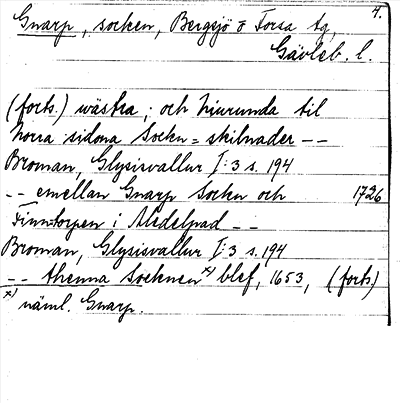 4.
Gnarp, socken, Bergsjö o Forsa tg,
Gävleb. l.
(forts.) wästra; och Niurunda til
norra sidona Sockn=skilnader --
Broman, Glysisvallur I:3 s. 194
-- emellan Gnarp Sockn och 1726
Finntorpen i Medelpad --
Broman, Glysisvallur I:3 s. 194
-- thenna Socknen x) blef, 1653, (forts.)
x) näml. Gnarp.